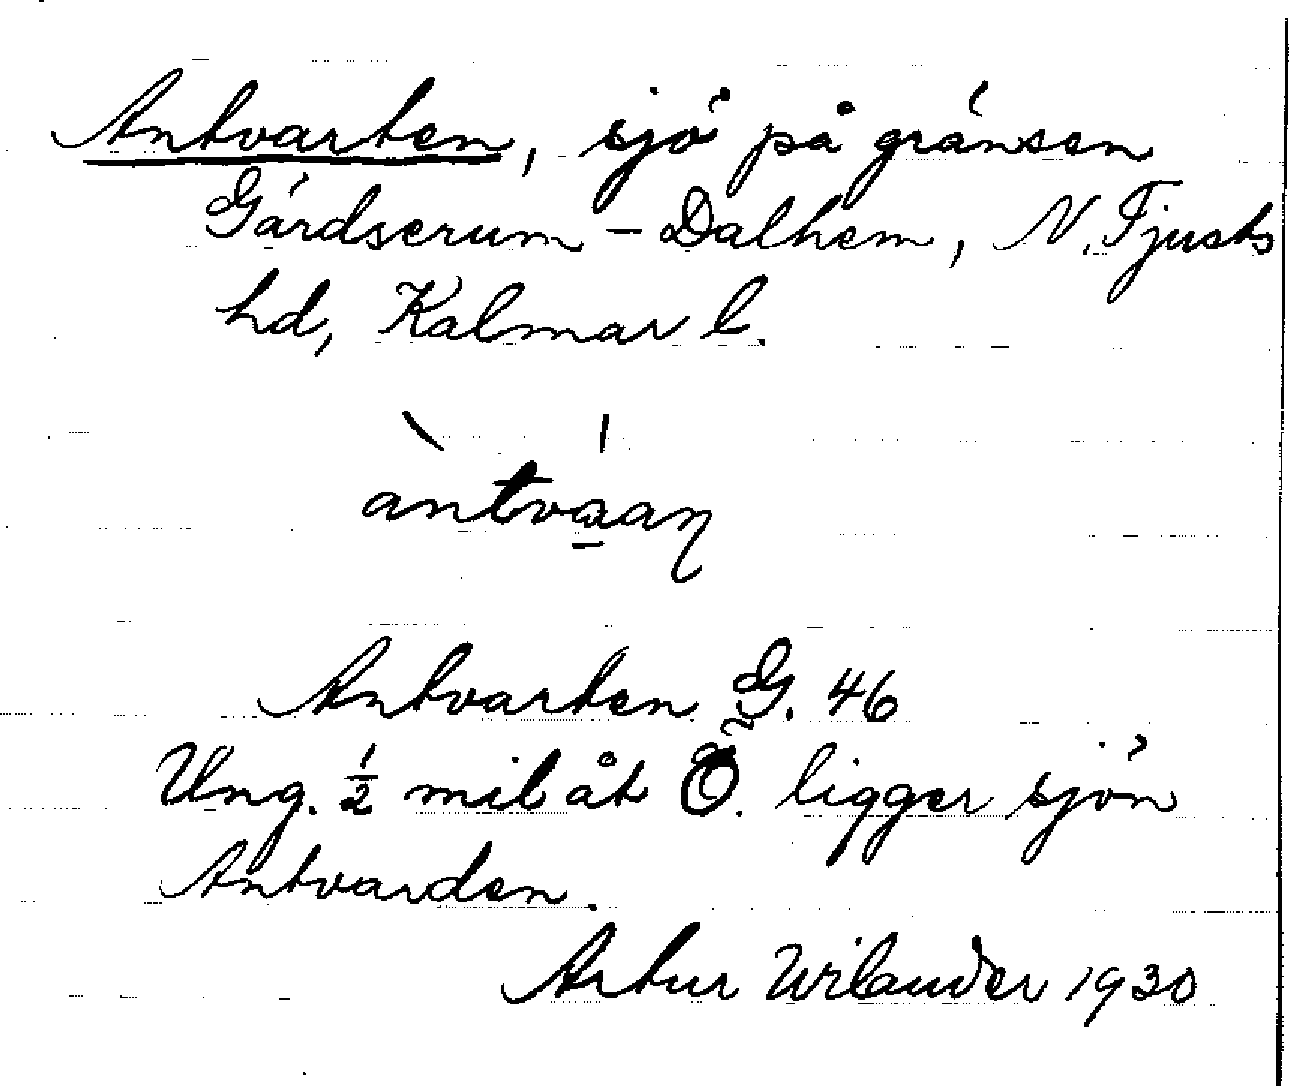 Antvarten, sjö på gränsen
Gärdserum – Dalhem, N. Tjusts
hd, Kalmar l.
àntvá̱aɳ
Antvarten G. 46
Ung. ½ mil åt Ö. ligger sjön
Antvarden.
Artur Wilander 1930